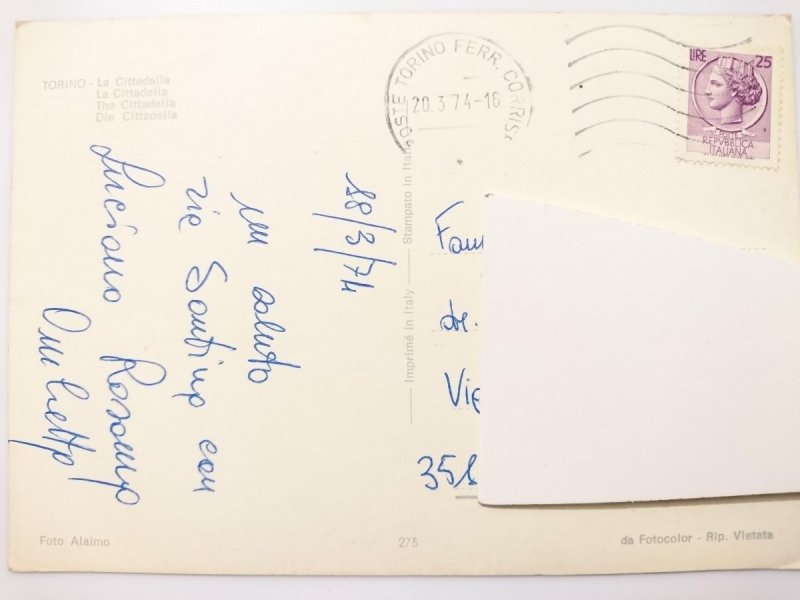 TORINO - La Cittadella
La Cittadella
The Cittadella
Die Cittadella
POSTE TORINO FERR. CORRISP
20.3.74-16
LIRE 25
POSTE
REPVBBLICA
ITALIANA
18/3/74
un saluto
zie Santina con
Luciano Rosanna
Ombretta
Imprimé in Italy — Stampato in Italia
Fam
Via
Foto Alaimo
275
da Fotocolor - Rip. Vietata